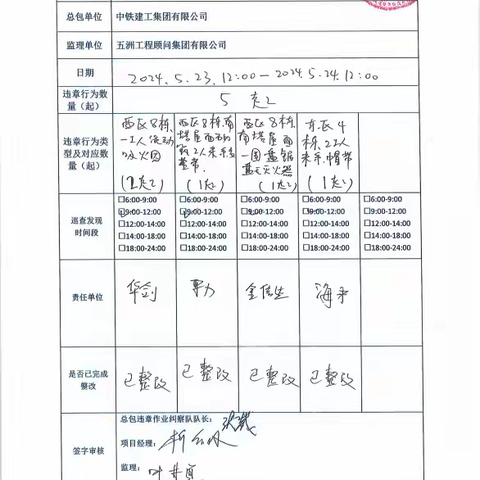 总包单位 中铁建工集团有限公司
监理单位 五洲工程顾问集团有限公司
日期 2024.5.23.12:00—2024.5.24.12:00
违章行为数
量（起） 5起
违章行为类
型及对应数
量（起）
西区8栋 西区8栋南 西区8栋 东区4
一人流动 塔屋面 南塔屋面 栋22人
吸火图 2人未系安 一圆盘锯 未系帽带
全带. 无灭火器
(2起) (1起) (1起) (1起)
巡查发现
时间段
☐6:00-9:00 ☐6:00-9:00 ☐6:00-9:00 ☐6:00-9:00 ☐6:00-9:00
☐9:00-12:00 ☐9:00-12:00 ☐9:00-12:00 ☐9:00-12:00 ☐9:00-12:00
☐12:00-14:00 ☐12:00-14:00 ☐12:00-14:00 ☐12:00-14:00 ☐12:00-14:00
☐14:00-18:00 ☐14:00-18:00 ☐14:00-18:00 ☐14:00-18:00 ☐14:00-18:00
☐18:00-24:00 ☐18:00-24:00 ☐18:00-24:00 ☐18:00-24:00 ☐18:00-24:00
责任单位 华剑
是否已完成
整改 已整改 已整改 已整改 已整改
总包违章作业纠察队队长：
签字审核 项目经理：
监理：